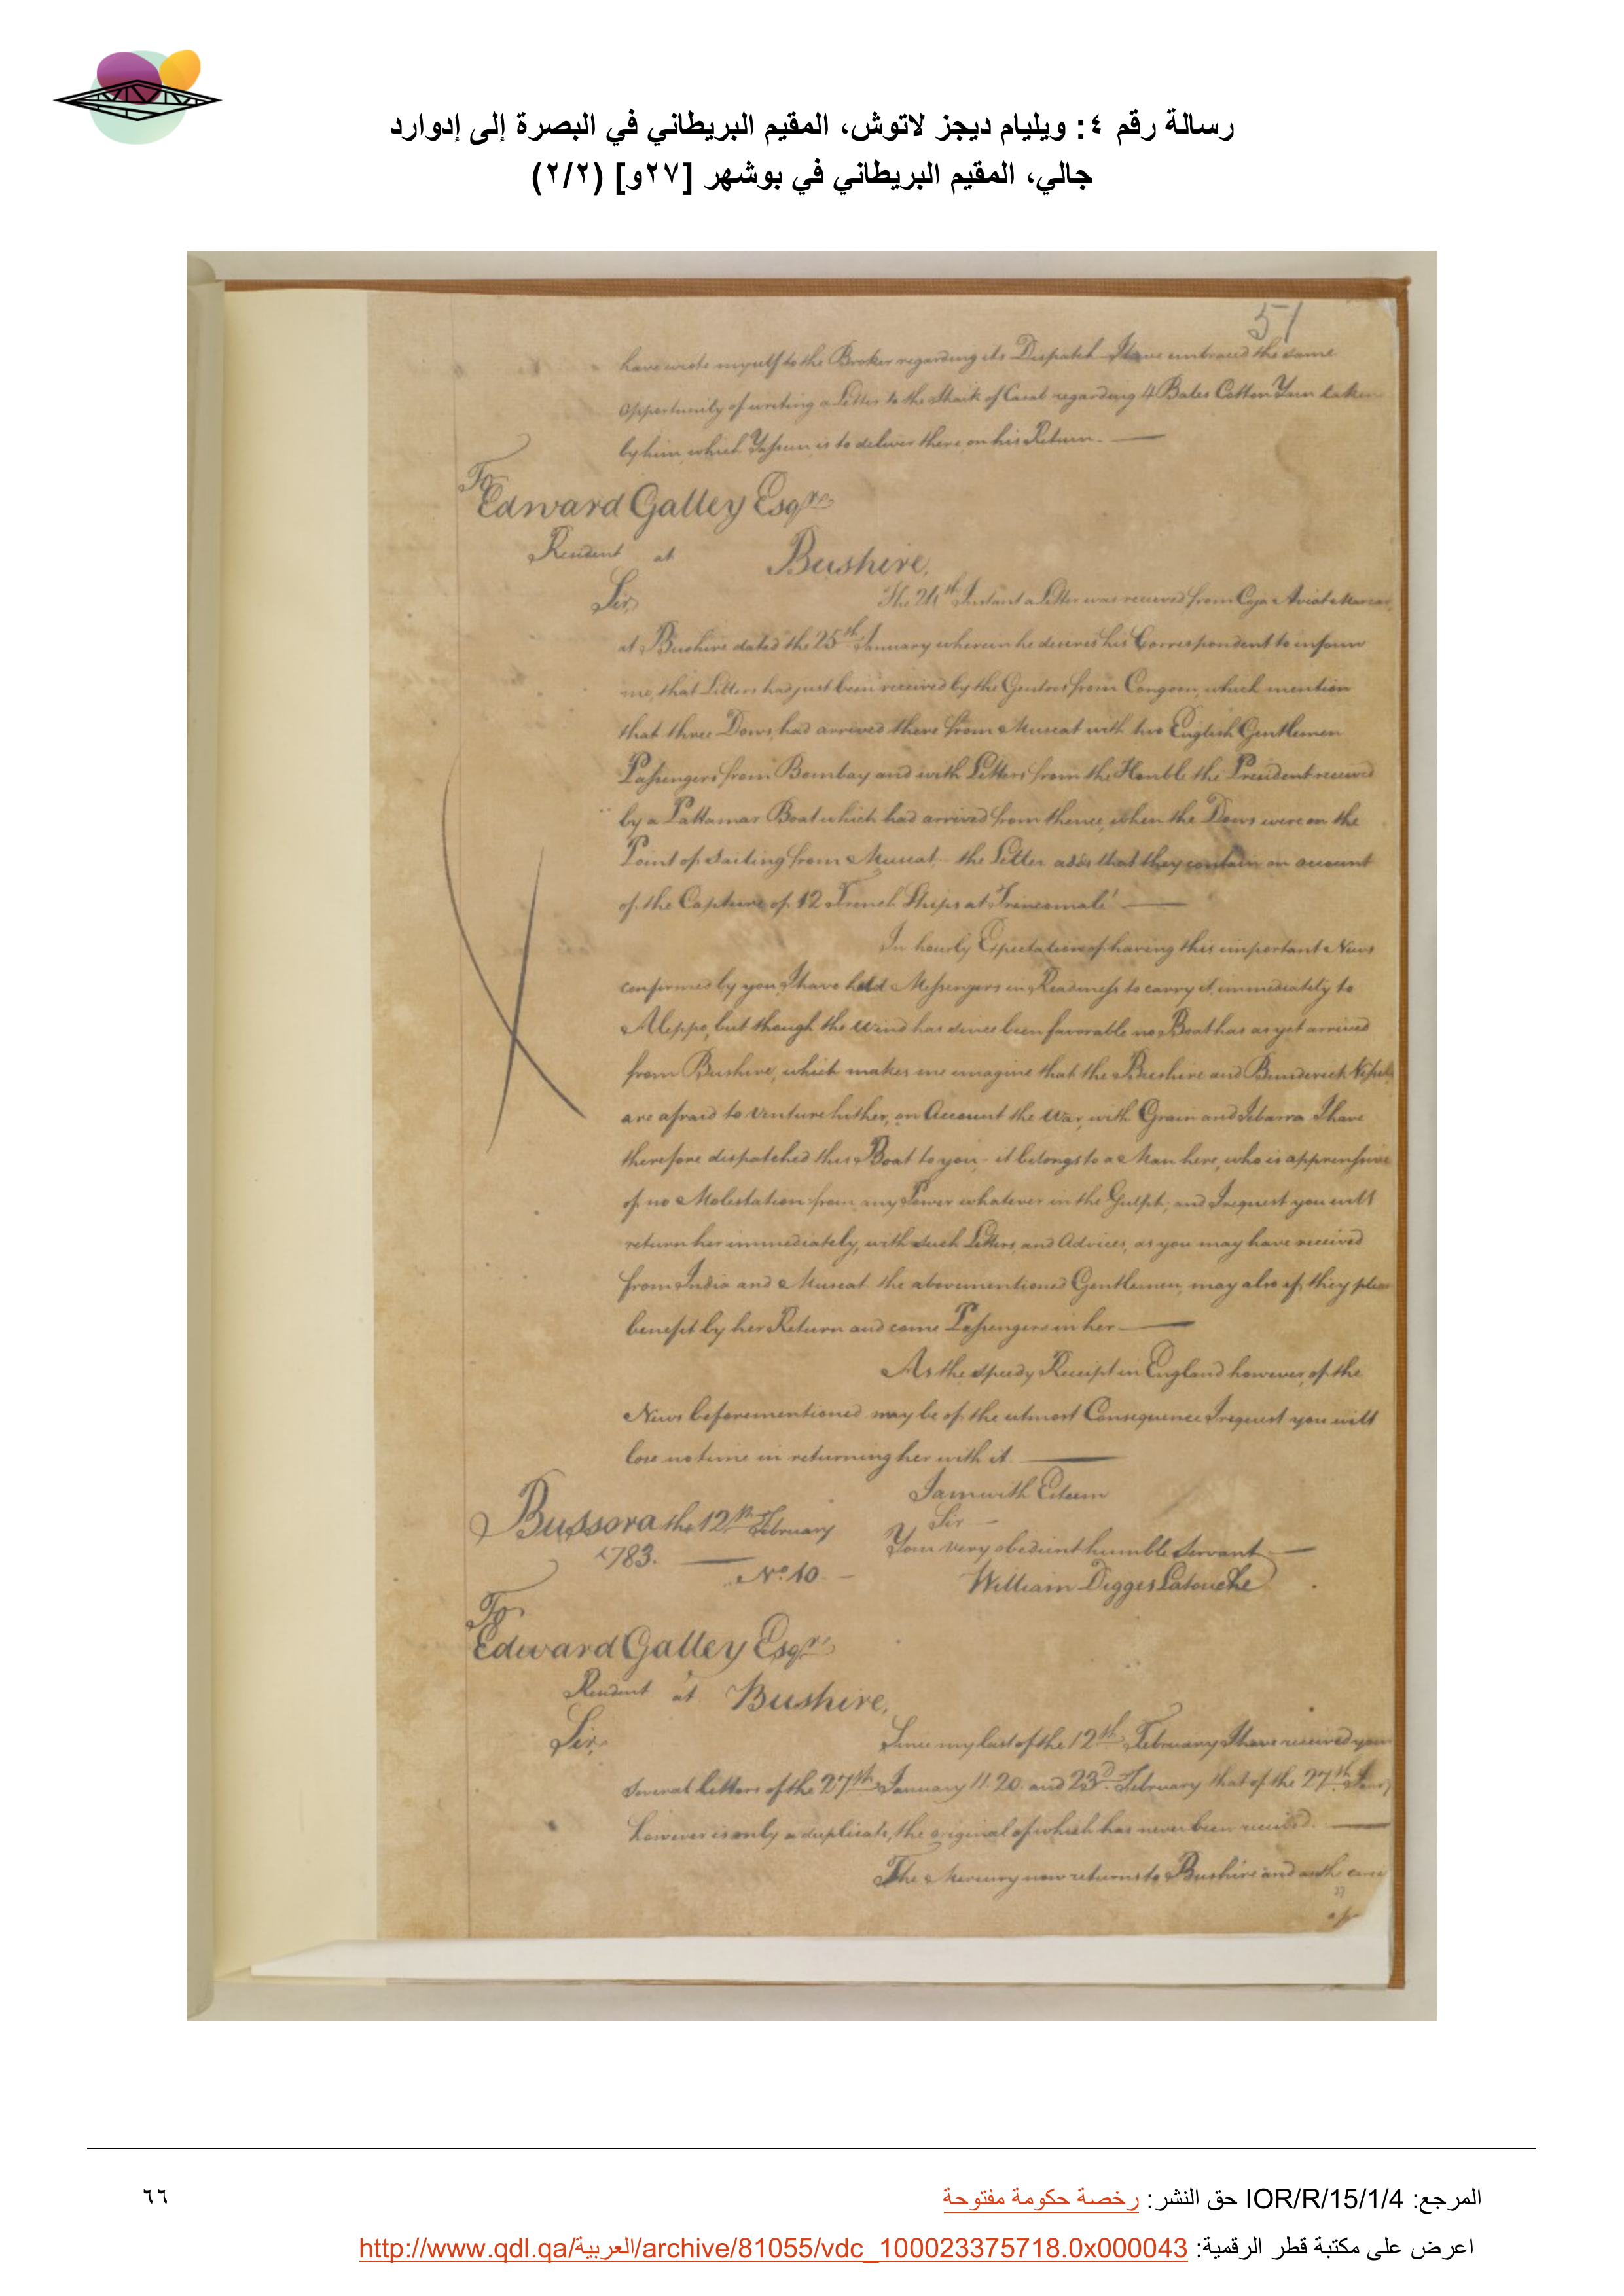 رسالة رقم ٤: ويليام ديجز لاتوش، المقيم البريطاني في البصرة إلى إدوارد
جالي، المقيم البريطاني في بوشهر [٢٧و] (٢/٢)
51
have wrote myself to the Broker regarding its Dispatch I have embraced the same
opportunity of writing a Letter to the Shaik of Caab regarding 4 Bales Cotton Yarn taken
by him, which Yassun is to deliver there, on his Return.
To
Edward Galley Esqre
Resident at Bushire,
Sir, The 24th Instant a Letter was received from Coja Aviat
at Bushire dated the 25th January wherein he desires his Correspondent to inform
me, that Letters had just been received by the Gentoos from Congoon, which mention
that three Dows, had arrived there from Muscat with two English Gentlemen
Passengers from Bombay and with Letters from the Honble the President received
by a Pattamar Boat which had arrived from thence, when the Dows were on the
Point of Sailing from Muscat the Letter adds that they contain an account
of the Capture of 12 French Ships at Trincomalé
In hourly Expectation of having this important News
confirmed by you, I have held Messengers in Readiness to carry it, immediately to
Aleppo, but though the Wind has since been favorable no Boat has as yet arrived
from Bushire, which makes me imagine that the Bushire and Bunderick Vessels
are afraid to venture hither, on Account the War, with Grain and Zebarra I have
therefore dispatched this Boat to you - it belongs to a Man here, who is apprensive
of no Molestation from any Power whatever in the Gulph, and I request you will
return her immediately, with such Letters, and Advices, as you may have received
from India and Muscat the abovementioned Gentlemen, may also if they please
benefit by her Return and come Passengers in her
As the speedy Receipt in England however, of the
News beforementioned may be of the utmost Consequence I request you will
lose no time in returning her with it
I am with Esteem
Sir
Bussora the 12th February Your very obedient humble Servant
1783. William Digges Latouche
No. 10
To
Edward Galley Esqr
Resident at Bushire,
Sir, Since my last of the 12th February I have received your
several Letters of the 27th January 11. 20. and 23d February that of the 27th
however is only a duplicate, the original of which has never been received.
The Mercury now returns to Bushire and
27
المرجع: IOR/R/15/1/4 حق النشر: رخصة حكومة مفتوحة
٦٦
اعرض على مكتبة قطر الرقمية: http://www.qdl.qa/العربية/archive/81055/vdc_100023375718.0x000043